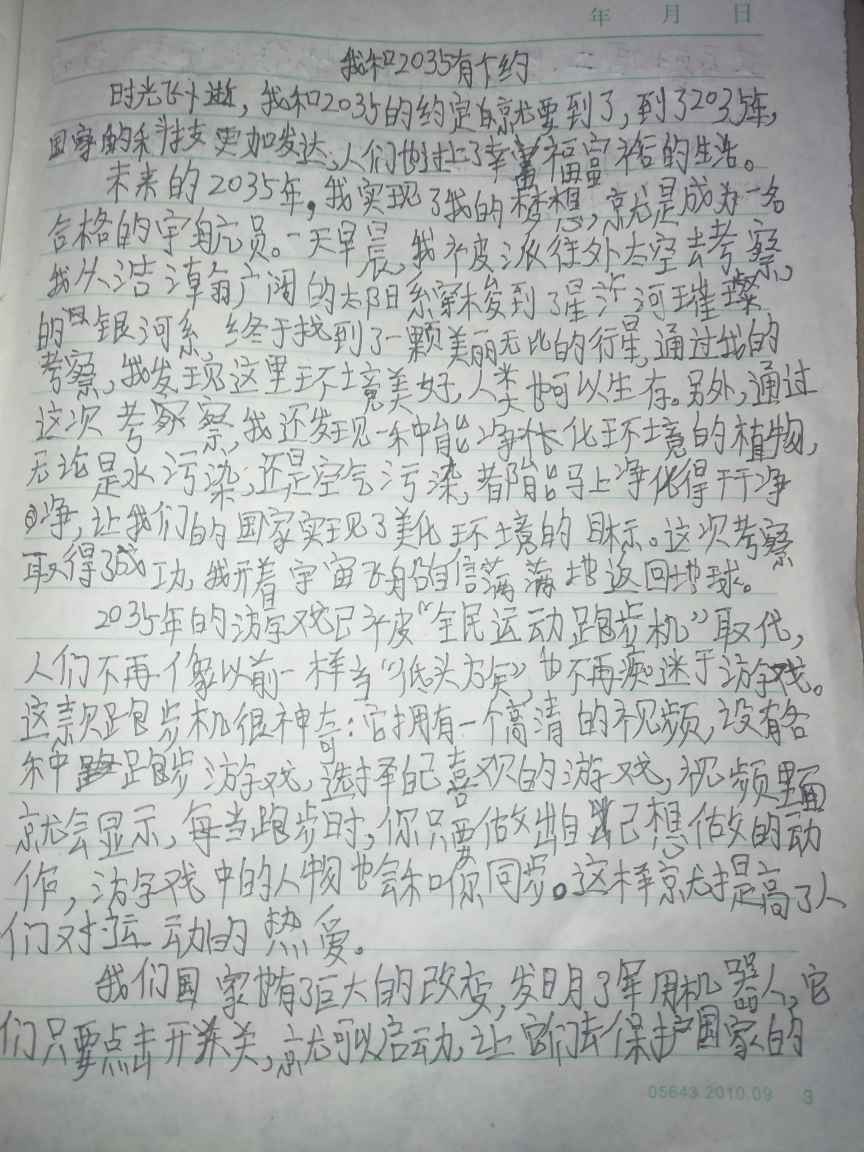 年 月 日
我和2035有个约
时光飞逝，我和2035的约定就要到了，到了2035年，
国家的科技更加发达，人们也过上了幸福富裕的生活。
未来的2035年，我实现了我的梦想，就是成为一名
合格的宇航员。一天早晨，我被派往外太空去考察，
我从浩瀚广阔的太阳系穿梭到了星河璀璨
的银河系，终于找到了一颗美丽无比的行星，通过我的
考察，我发现这里环境美好，人类也可以生存。另外，通过
这次考察，我还发现一种能净化环境的植物，
无论是水污染，还是空气污染，都能马上净化得干干净
净，让我们的国家实现了美化环境的目标。这次考察
取得了成功，我开着宇宙飞船自信满满地返回地球。
2035年的游戏已被“全民运动跑步机”取代，
人们不再像以前一样当“低头族”，也不再痴迷于游戏。
这款跑步机很神奇：它拥有一个高清的视频，设有各
种跑步游戏，选择自己喜欢的游戏，视频里面
就会显示，每当跑步时，你只要做出自己想做的动
作，游戏中的人物也会和你同步。这样就提高了人
们对运动的热爱。
我们国家也有了巨大的改变，发明了军用机器人，它
们只要点击开关，就可以启动，让它们去保护国家的
05643 2010.09 3